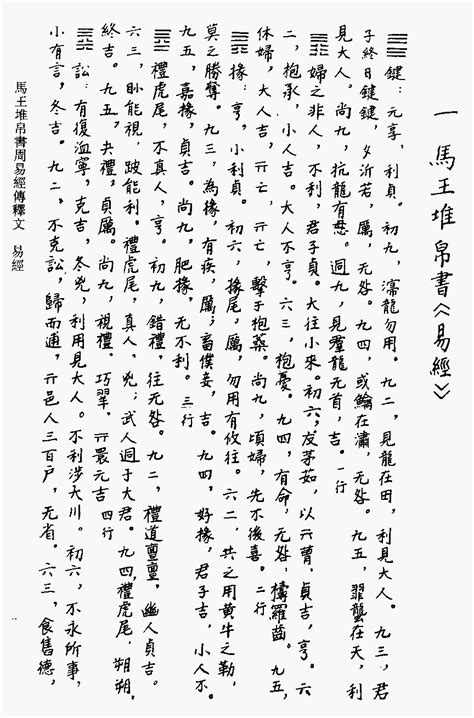 一 馬王堆帛書《易經》
䷀鍵:元享,利貞。初九,濳龍勿用。九二,見龍在田,利見大人。九三,君
子終日鍵鍵,夕沂若,厲,无咎。九四,或在,无咎。九五,在天,利
見大人。尚九,抗龍有悬。迵九,見羣龍无首,吉。一行
䷋婦之非人,不利,君子貞。大往小來。初六,犮茅茹,以亓曹,貞吉,亨。六
二,抱承,小人吉。大人不,亨。六三,抱憂。九四,有命,无咎,檮羅齒。九五,
休婦,大人吉,亓亡,亓亡,擊于抱桑。尚九,頃婦,先不後喜。二行
䷠掾:亨,小利貞。初六,掾尾,厲,勿用有攸往。六二,共之用黃牛之勒,
莫之勝奪。九三,為掾,有疾,厲;畜僕妾,吉。九四,好掾,君子吉,小人不。
九五,嘉掾,貞吉。尚九,肥掾,无不利。三行
䷉禮虎尾,不真人,亨。初九,錯禮,往无咎。九二,禮道亶亶,幽人貞吉。
六三,眇能視,跛能利。禮虎尾,真人,兇;武人迵于大君。九四,禮虎尾,朔朔,
終吉。九五,夬禮,貞厲。尚九,視禮,巧翬,亓睘元吉 四行
䷅訟:有復洫寧,克吉,冬兇,利用見大人。不利涉大川。初六,不永所事,
小有言,冬吉。九二,不克訟,歸而逋,亓邑人三百戶,无省。六三,食舊德,
馬王堆帛書周易經傳釋文 易經